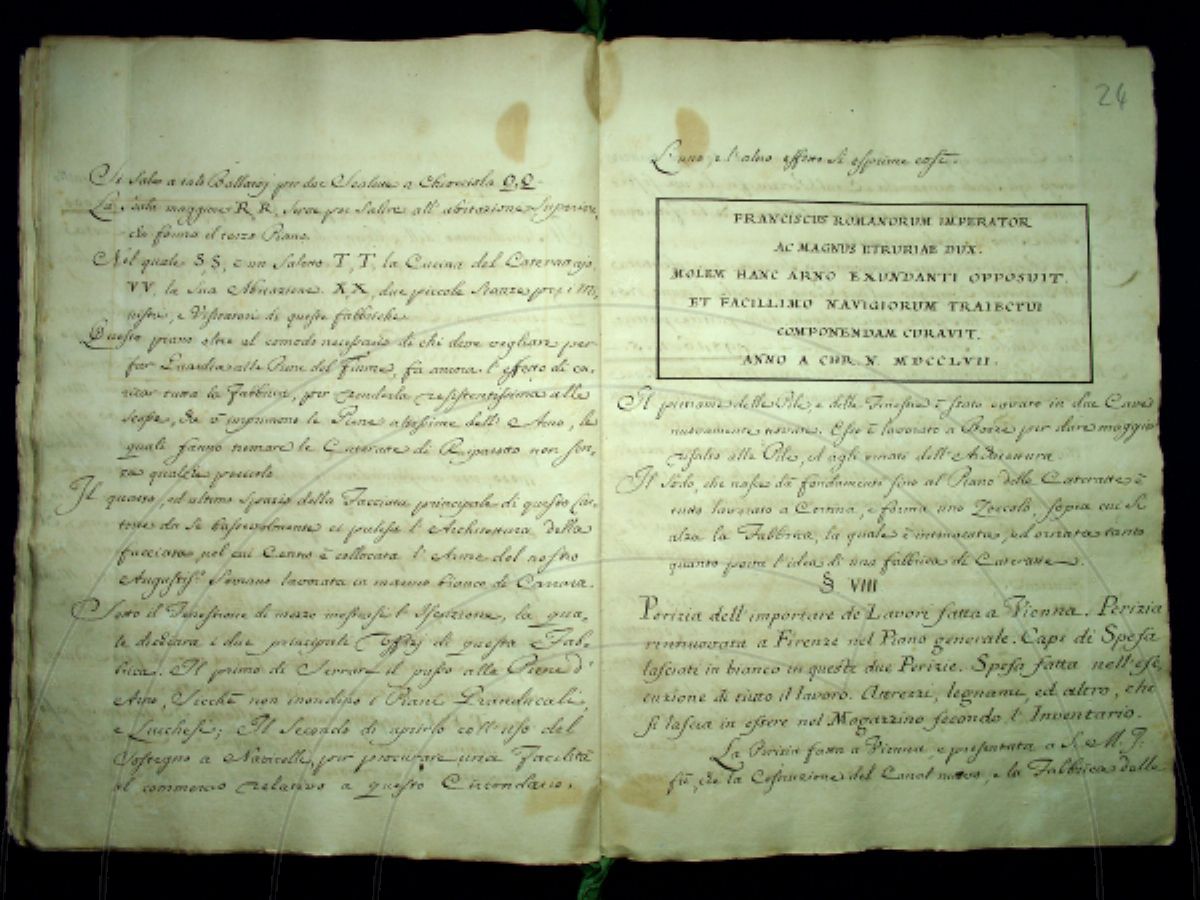 Si Sale a tali Ballatoj per due Scalette a Chiocciola Q, Q.
La Scala maggiore R, R, serve per Salire all' abitazione Superiore,
che forma il terzo Piano.
Nel quale S, S, è un Salotto T, T, la Cucina del Caterattajo
VV, la Sua Abitazione. X, X, due piccole Stanze per i Mi-
nistri, e Visitatori di queste fabbriche.
Questo piano oltre al comodo necessario di chi deve vegliare per
far Guardia alle Piene del Fiume, fa ancora l' effetto di ca-
ricar tutta la Fabbrica, per renderla resistentissima alle
scosse, che v' imprimono le Piene altissime dell' Arno, le
quali fanno tremare le Cateratte di Ripafratta non sen-
za qualche pericolo.
Il quarto, ed ultimo Spazio della Facciata principale di questo
da se bastevolmente ci palesa l' Architettura della
facciata nel cui Centro è collocata l' Arme del nostro
Augustis.º Sovrano lavorata in marmo bianco di Carrara.
Sotto il Finestrone di mezzo mostrasi l' Iscrizione, la qua-
le dichiara i due principali Offizj di questa Fab-
brica. Il primo di Serrare il passo alle Piene d'
Arno, Sicchè non inondino i Piani Granducali,
e Lucchesi; Il Secondo di aprirlo coll' uso del
Sostegno a Navicelli, per procurare una Facilità
al commercio relativo a questo Circondario.
24
L' uno, e l' altro effetto Si esprime così.
FRANCISCUS ROMANORUM IMPERATOR
AC MAGNUS ETRURIAE DUX.
MOLEM HANC ARNO EXUNDANTI OPPOSUIT.
ET FACILLIMO NAVIGIORUM TRAIECTUI
COMPONENDAM CURAVIT.
ANNO A CHR. N. MDCCLVII.
Il pietrame delle Pile, e delle Finestre è stato cavato in due Cave
nuovamente trovate. Esso è lavorato a Bozze per dare maggior
risalto alle Pile, ed agli ornati dell' Architettura.
Il Sodo, che nasce da' fondamenti fino al Piano delle Cateratte è
tutto lavorato a Cortina, e forma uno Zoccolo, sopra cui Si
alza la Fabbrica, la quale è intonacata, ed ornata tanto
quanto porta l' idea di una fabbrica di Cateratte.
§ VIII
Perizia dell' importare de Lavori fatta a Vienna. Perizia
rinnuovata a Firenze nel Piano generale. Capi di Spesa
lasciati in bianco in queste due Perizie. Spesa fatta nell' ese-
cuzione di tutto il lavoro. Attrezzi, legnami, ed altro, che
si lascia in essere nel Magazzino secondo l' Inventario.
La Perizia fatta a Vienna, e presentata a S. M. I.
fù, che la Costruzione del Canal nuovo, e la Fabbrica delle